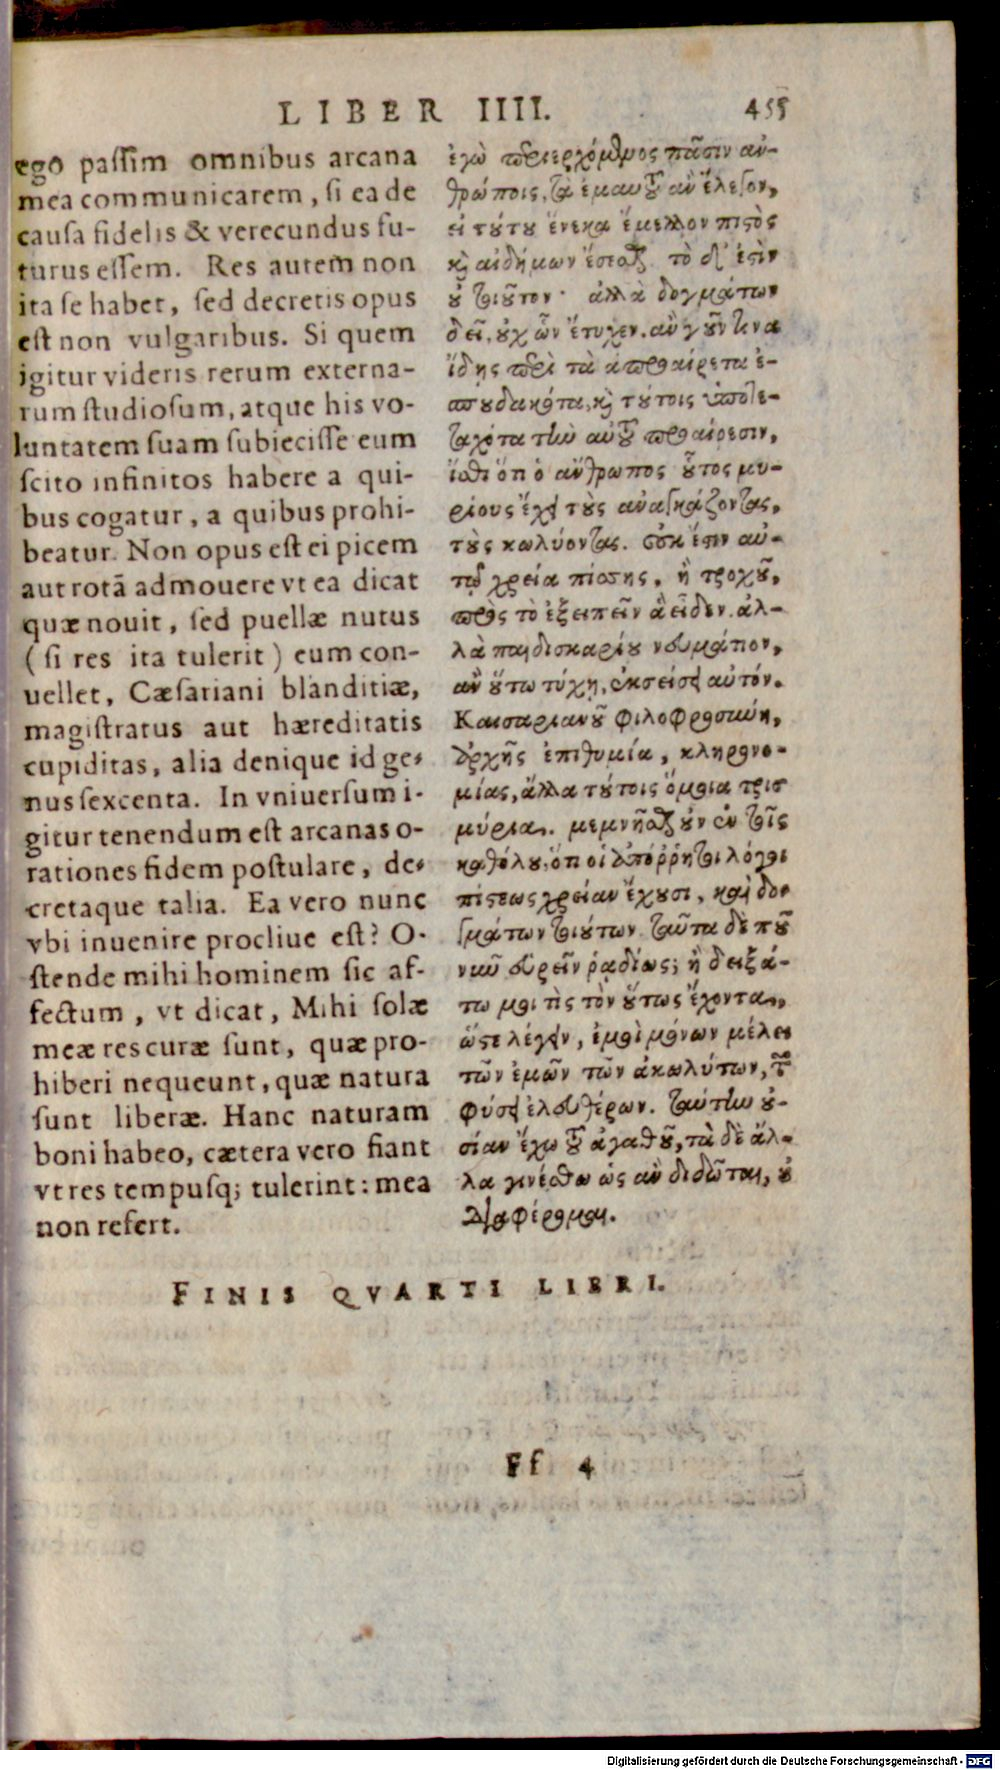 LIBER IIII. 455
ego paſſim omnibus arcana
mea communicarem, ſi ea de
cauſa fidelis & verecundus fu-
turus eſſem. Res autem non
ita ſe habet, ſed decretis opus
eſt non vulgaribus. Si quem
igitur videris rerum externa-
rum ſtudioſum, atque his vo-
luntatem ſuam ſubieciſſe eum
ſcito infinitos habere a qui-
bus cogatur, a quibus prohi-
beatur. Non opus eſt ei picem
aut rotā admouere vt ea dicat
quæ nouit, ſed puellæ nutus
(ſi res ita tulerit) eum con-
uellet, Cæſariani blanditiæ,
magiſtratus aut hæreditatis
cupiditas, alia denique id ge-
nus ſexcenta. In vniuerſum i-
gitur tenendum eſt arcanas o-
rationes fidem poſtulare, de-
cretaque talia. Ea vero nunc
vbi inuenire procliue eſt? O-
ſtende mihi hominem ſic af-
fectum, vt dicat, Mihi ſolæ
meæ res curæ ſunt, quæ pro-
hiberi nequeunt, quæ natura
ſunt liberæ. Hanc naturam
boni habeo, cætera vero fiant
vt res tempuſq; tulerint: mea
non refert.
ἐγὼ περιερχόμενος πᾶσιν ἀν-
θρώποις, τὰ ἐμαυτοῦ ἂν ἔλεγον,
εἰ τούτου ἕνεκα ἔμελλον πιστὸς
καὶ αἰδήμων ἔσεσθαι. τὸ δ' ἐστὶν
οὐ τοιοῦτον· ἀλλὰ δογμάτων
δεῖ, οὐχ ὧν ἔτυχεν. ἂν γοῦν τινα
ἴδῃς περὶ τὰ ἀπροαίρετα ἐ-
σπουδακότα, καὶ τούτοις ὑποτε-
ταχότα τὴν αὑτοῦ προαίρεσιν,
ἴσθι ὅτι ὁ ἄνθρωπος οὗτος μυ-
ρίους ἔχει τοὺς ἀναγκάζοντας,
τοὺς κωλύοντας. οὐκ ἔστιν αὐ-
τῷ χρεία πίσσης, ἢ τροχοῦ,
πρὸς τὸ ἐξειπεῖν ἃ εἶδεν. ἀλ-
λὰ παιδισκαρίου νευμάτιον,
ἂν οὕτω τύχῃ, ἐκσείσει αὐτόν.
Καισαριανοῦ φιλοφροσύνη,
ἀρχῆς ἐπιθυμία, κληρονο-
μίας, ἄλλα τούτοις ὅμοια τρισ
μύρια. μεμνῆσθαι οὖν ἐν τοῖς
καθόλου, ὅτι οἱ ἀπόρρητοι λόγοι
πίστεως χρείαν ἔχουσι, καὶ δο-
γμάτων τοιούτων. ταῦτα δὲ ποῦ
νῦν εὑρεῖν ῥαδίως; ἢ δειξά-
τω μοι τὶς τὸν οὕτως ἔχοντα,
ὥστε λέγειν, ἐμοὶ μόνων μέλει
τῶν ἐμῶν τῶν ἀκωλύτων, τῶν
φύσει ἐλευθέρων. ταύτην οὐ-
σίαν ἔχω τοῦ ἀγαθοῦ, τὰ δὲ ἄλ-
λα γινέσθω ὡς ἂν διδῶται, οὐ
διαφέρομαι.
FINIS QVARTI LIBRI.
Ff 4
Digitalisierung gefördert durch die Deutsche Forschungsgemeinschaft - DFG